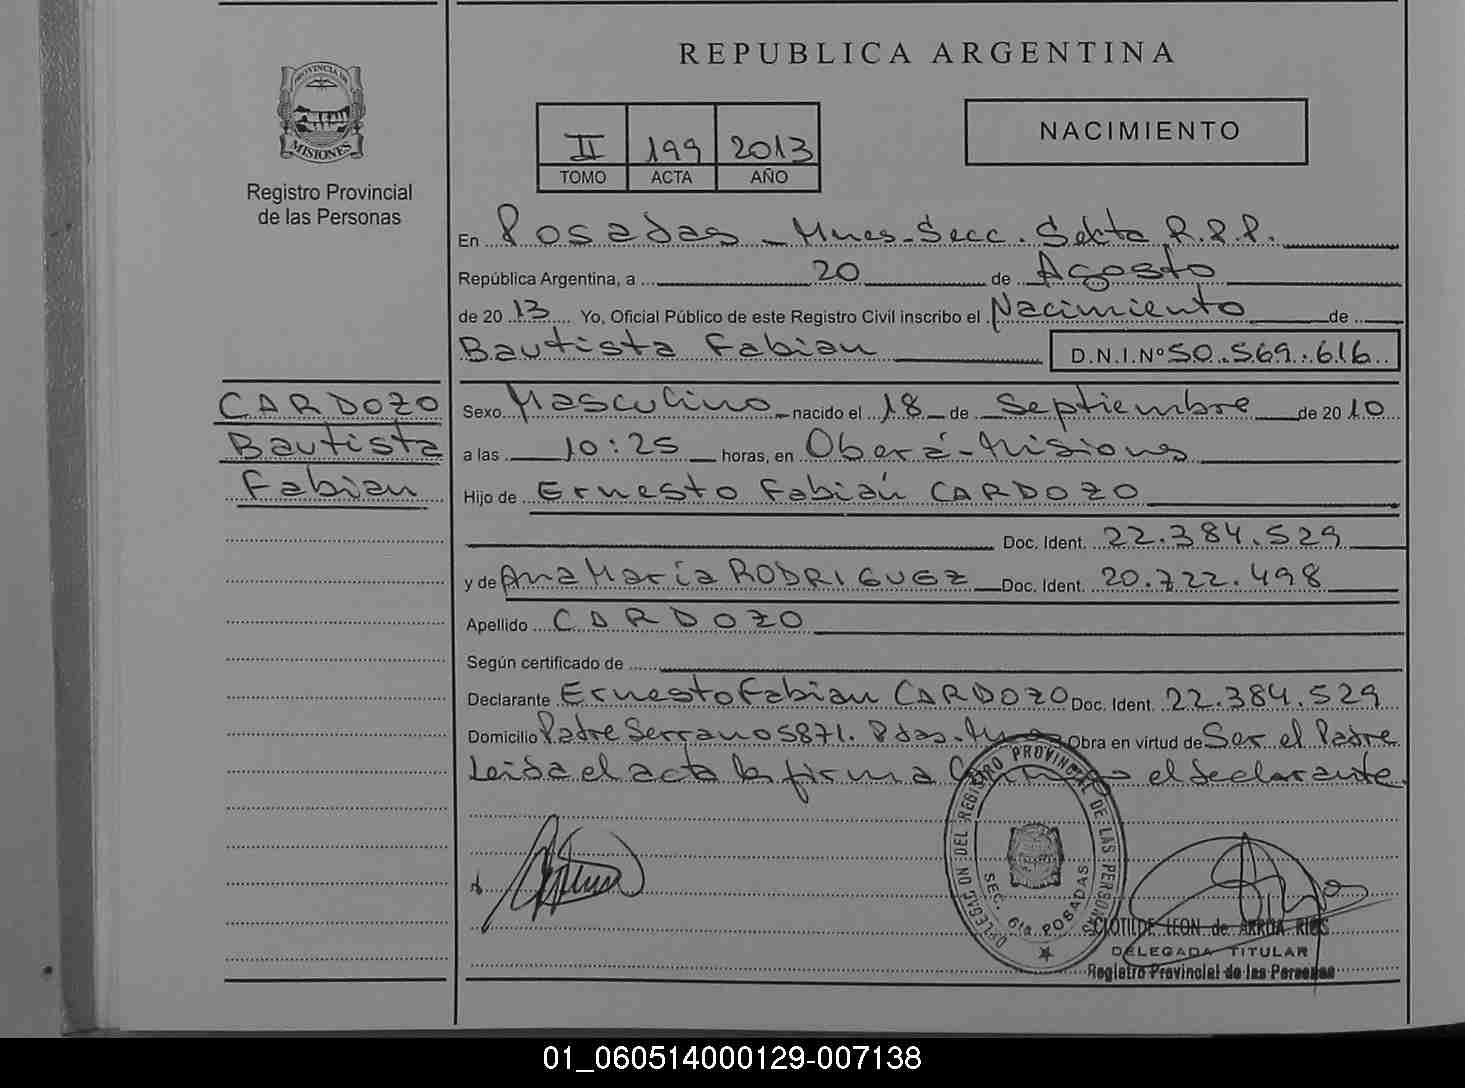 REPUBLICA ARGENTINA
PROVINCIA DE
MISIONES
Registro Provincial
de las Personas
II 199 2013
TOMO ACTA AÑO
NACIMIENTO
En Posadas - Mnes - Secc. Sexta R.P.P.
República Argentina, a 20 de Agosto
de 2013 Yo, Oficial Público de este Registro Civil inscribo el Nacimiento de
Bautista Fabian D.N.I.Nº 50.569.616
CARDOZO
Bautista
Fabian
Sexo Masculino nacido el 18 de Septiembre de 2010
a las 10:25 horas, en Oberá - Misiones
Hijo de Ernesto Fabián CARDOZO
Doc. Ident. 22.384.529
y de Ana María RODRIGUEZ Doc. Ident. 20.722.498
Apellido CARDOZO
Según certificado de
Declarante Ernesto Fabian CARDOZO Doc. Ident. 22.384.529
Domicilio Padre Serrano 5871. Pdas. Obra en virtud de Ser el Padre
Leida el acta la firma el declarante.
DELEGACION DEL REGISTRO PROVINCIAL DE LAS PERSONAS
SEC. 6ta POSADAS
CLOTILDE LEON de ARRUA RIOS
DELEGADA TITULAR
Registro Provincial de las Personas
01_060514000129-007138